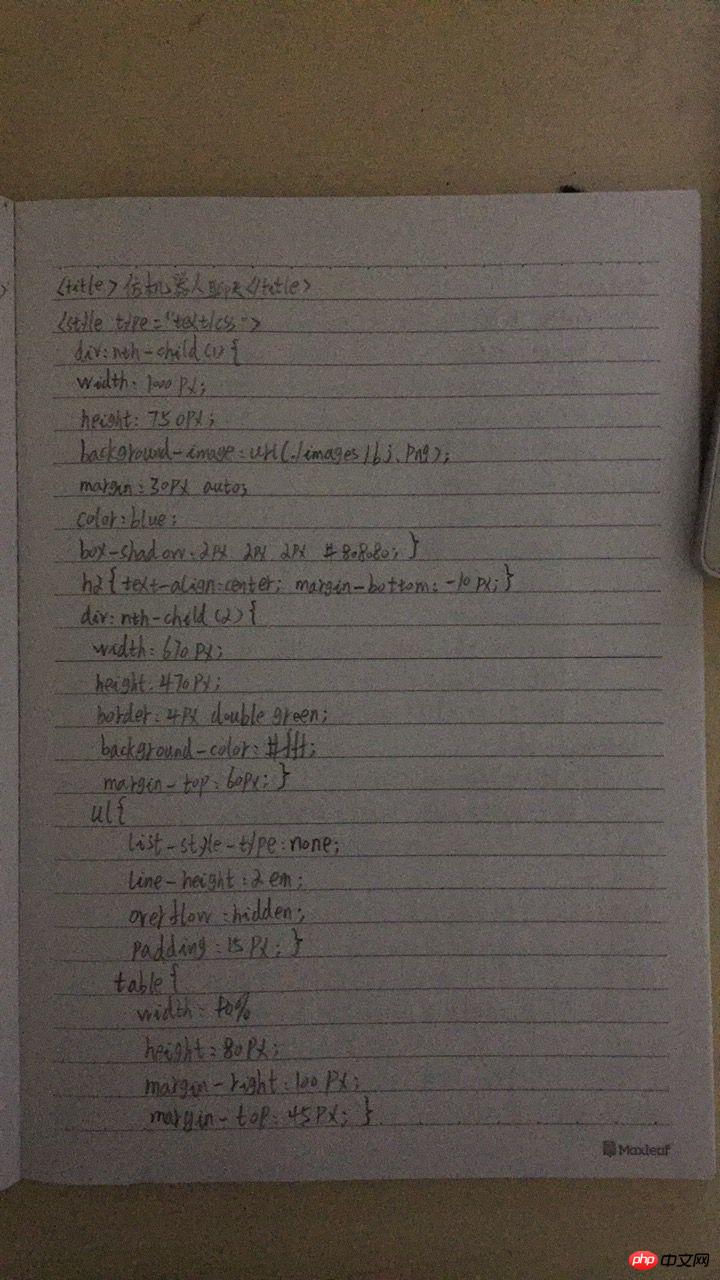 <title>仿机器人聊天</title>
<style type="text/css">
div:nth-child(1){
width:1000px;
height:750px;
background-image:url(./images/bj.png);
margin:30px auto;
color:blue;
box-shadow:2px 2px 2px #808080;}
h2{text-align:center; margin-bottom:-10px;}
div:nth-child(2){
width:670px;
height:470px;
border:4px double green;
background-color:#fff;
margin-top:60px;}
ul{
list-style-type:none;
line-height:2em;
overflow:hidden;
padding:15px;}
table{
width:
height:80px;
margin-right:100px;
margin-top:45px;}
Maxleaf
php中文网